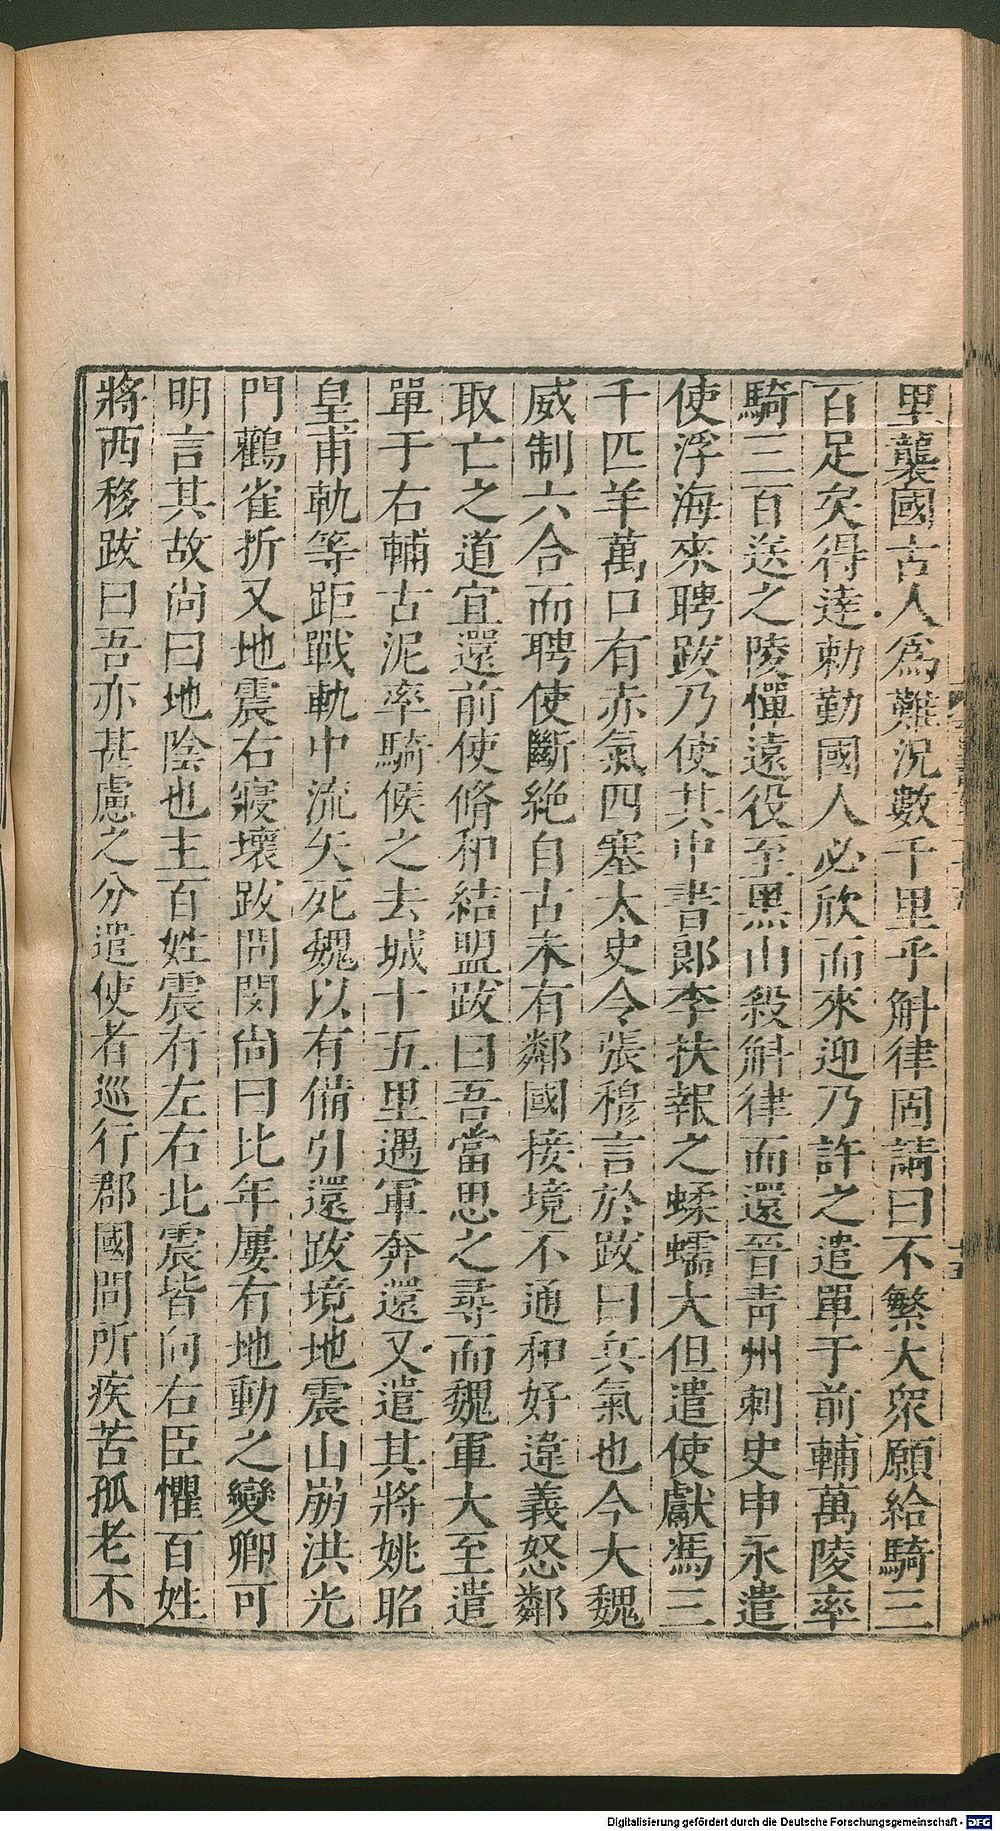 里襲國古人爲難況數千里乎斛律固請曰不繁大衆願給騎三
百足矣得達勅勤國人必欣而來迎乃許之遣單于前輔萬陵率
騎三百送之陵憚遠役至黑山殺斛律而還晉青州刺史申永遣
使浮海來聘跋乃使其中書郎李扶報之蝚蠕大但遣使獻馮三
千匹羊萬口有赤氣四塞太史令張穆言於跋曰兵氣也今大魏
威制六合而聘使斷絶自古未有鄰國接境不通和好違義怒鄰
取亡之道宜還前使脩和結盟跋曰吾當思之尋而魏軍大至遣
單于右輔古泥率騎候之去城十五里遇軍奔還又遣其將姚昭
皇甫軌等距戰軌中流矢死魏以有備引還跋境地震山崩洪光
門鸛雀折又地震右寢壞跋問閔尚曰比年屢有地動之變卿可
明言其故尚曰地陰也主百姓震有左右北震皆向右臣懼百姓
將西移跋曰吾亦甚慮之分遣使者巡行郡國問所疾苦孤老不
十五
Digitalisierung gefördert durch die Deutsche Forschungsgemeinschaft - DFG